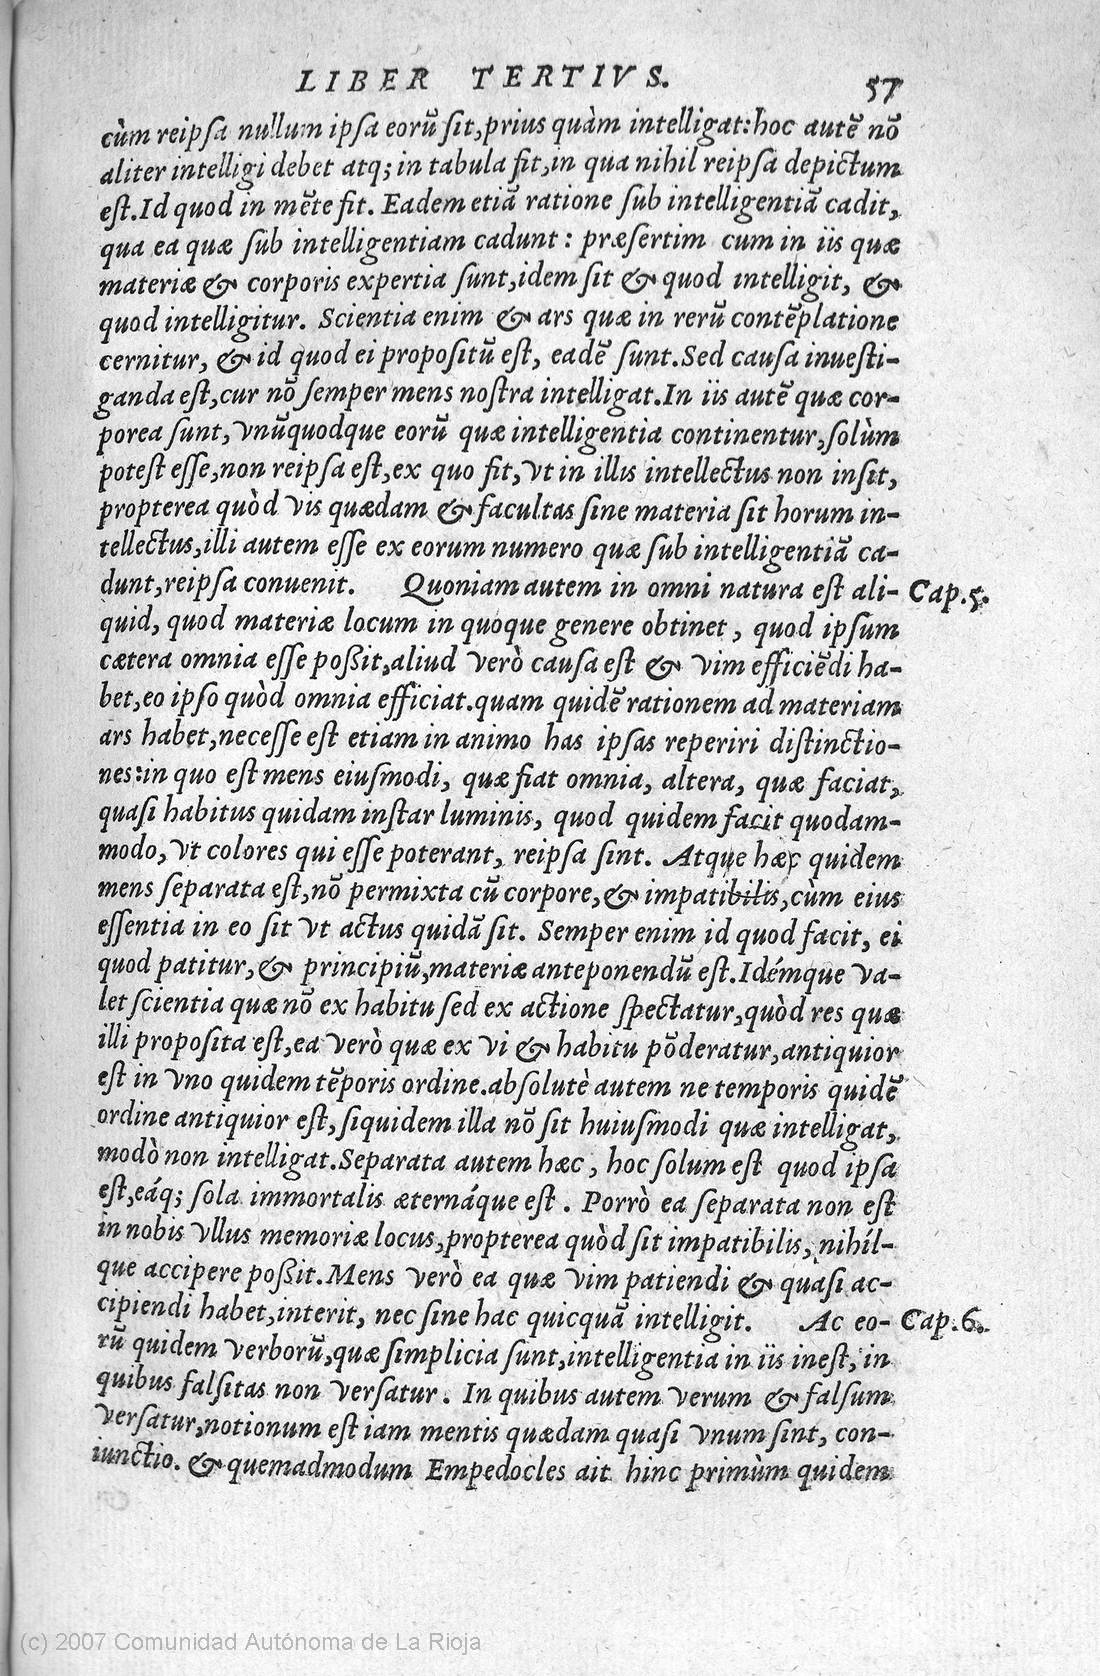 LIBER TERTIVS. 57
cùm reipsa nullum ipsa eorũ sit, prius quàm intelligat: hoc autẽ nõ
aliter intelligi debet atq; in tabula fit, in qua nihil reipsa depictum
est. Id quod in mẽte fit. Eadem etiã ratione sub intelligentiã cadit,
qua ea quæ sub intelligentiam cadunt: præsertim cum in iis quæ
materiæ & corporis expertia sunt, idem sit & quod intelligit, &
quod intelligitur. Scientia enim & ars quæ in rerũ contẽplatione
cernitur, & id quod ei propositũ est, eadẽ sunt. Sed causa inuesti-
ganda est, cur nõ semper mens nostra intelligat. In iis autẽ quæ cor-
porea sunt, vnũquodque eorũ quæ intelligentia continentur, solùm
potest esse, non reipsa est, ex quo fit, vt in illis intellectus non insit,
propterea quòd vis quædam & facultas sine materia sit horum in-
tellectus, illi autem esse ex eorum numero quæ sub intelligentiã ca-
dunt, reipsa conuenit. Quoniam autem in omni natura est ali- Cap. 5.
quid, quod materiæ locum in quoque genere obtinet, quod ipsum
cætera omnia esse poßit, aliud verò causa est & vim efficiẽdi ha-
bet, eo ipso quòd omnia efficiat. quam quidẽ rationem ad materiam
ars habet, necesse est etiam in animo has ipsas reperiri distinctio-
nes: in quo est mens eiusmodi, quæ fiat omnia, altera, quæ faciat,
quasi habitus quidam instar luminis, quod quidem facit quodam-
modo, vt colores qui esse poterant, reipsa sint. Atque hæc quidem
mens separata est, nõ permixta cũ corpore, & impatibilis, cùm eius
essentia in eo sit vt actus quidã sit. Semper enim id quod facit, ei
quod patitur, & principiũ, materiæ anteponendũ est. Idémque va-
let scientia quæ nõ ex habitu sed ex actione spectatur, quòd res quæ
illi proposita est, ea verò quæ ex vi & habitu põderatur, antiquior
est in vno quidem tẽporis ordine. absolutè autem ne temporis quidẽ
ordine antiquior est, siquidem illa nõ sit huiusmodi quæ intelligat,
modò non intelligat. Separata autem hæc, hoc solum est quod ipsa
est, eáq; sola immortalis æternáque est. Porrò ea separata non est
in nobis vllus memoriæ locus, propterea quòd sit impatibilis, nihíl-
que accipere poßit. Mens verò ea quæ vim patiendi & quasi ac-
cipiendi habet, interit, nec sine hac quicquã intelligit. Ac eo- Cap. 6.
rũ quidem verborũ, quæ simplicia sunt, intelligentia in iis inest, in
quibus falsitas non versatur. In quibus autem verum & falsum
versatur, notionum est iam mentis quædam quasi vnum sint, con-
iunctio. & quemadmodum Empedocles ait hinc primùm quidem
(c) 2007 Comunidad Autónoma de La Rioja